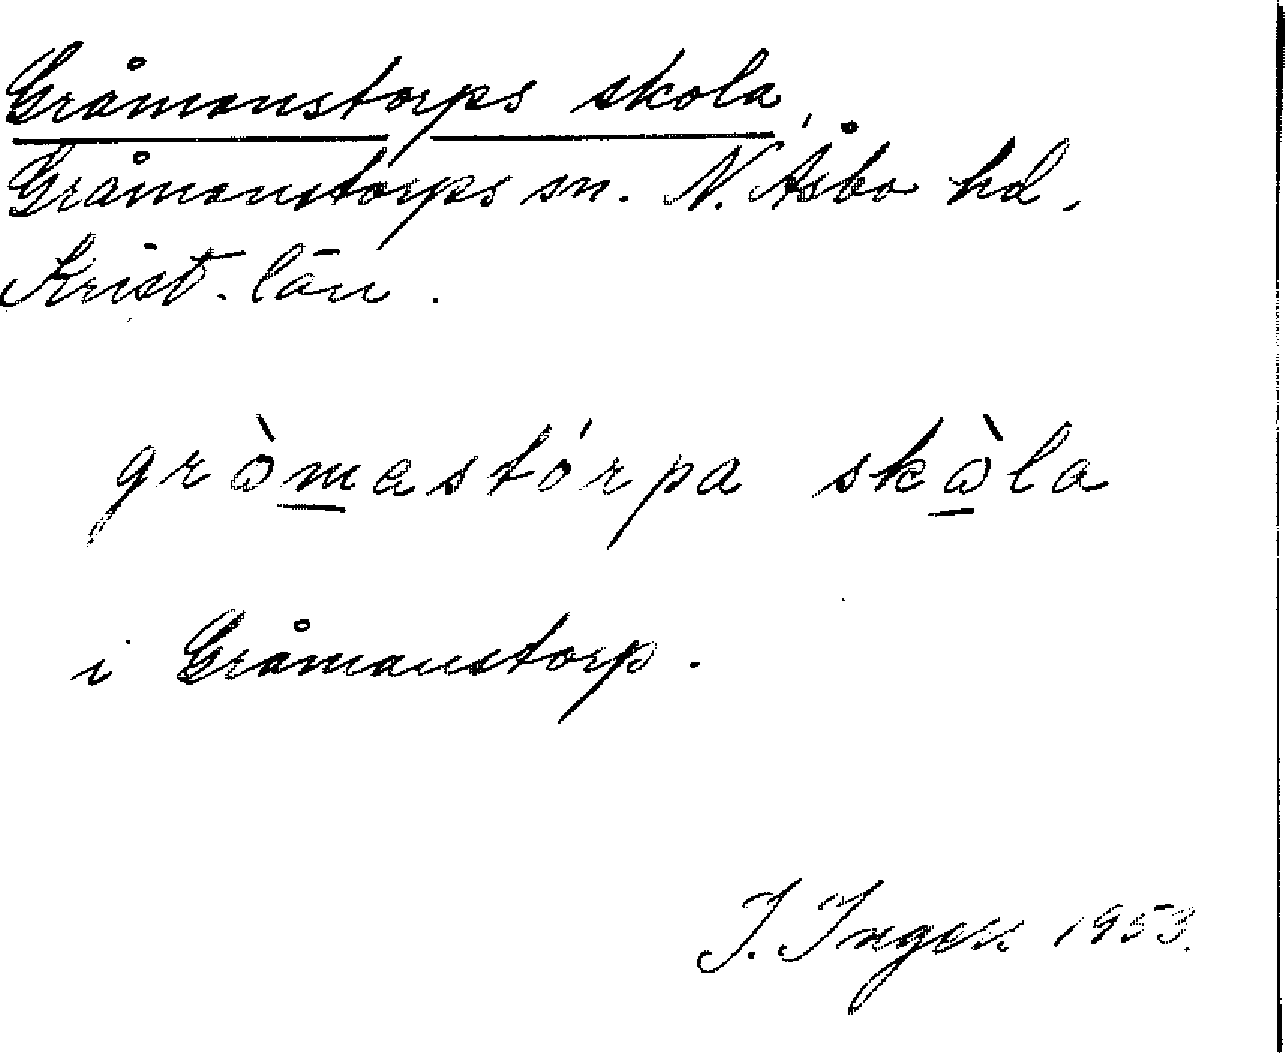 Gråmanstorps skola,
Gråmanstorps sn. N. Åsbo hd.
Krist. län.
gròmastórpa skàla
i Gråmanstorp.
I. Ingers 1953.